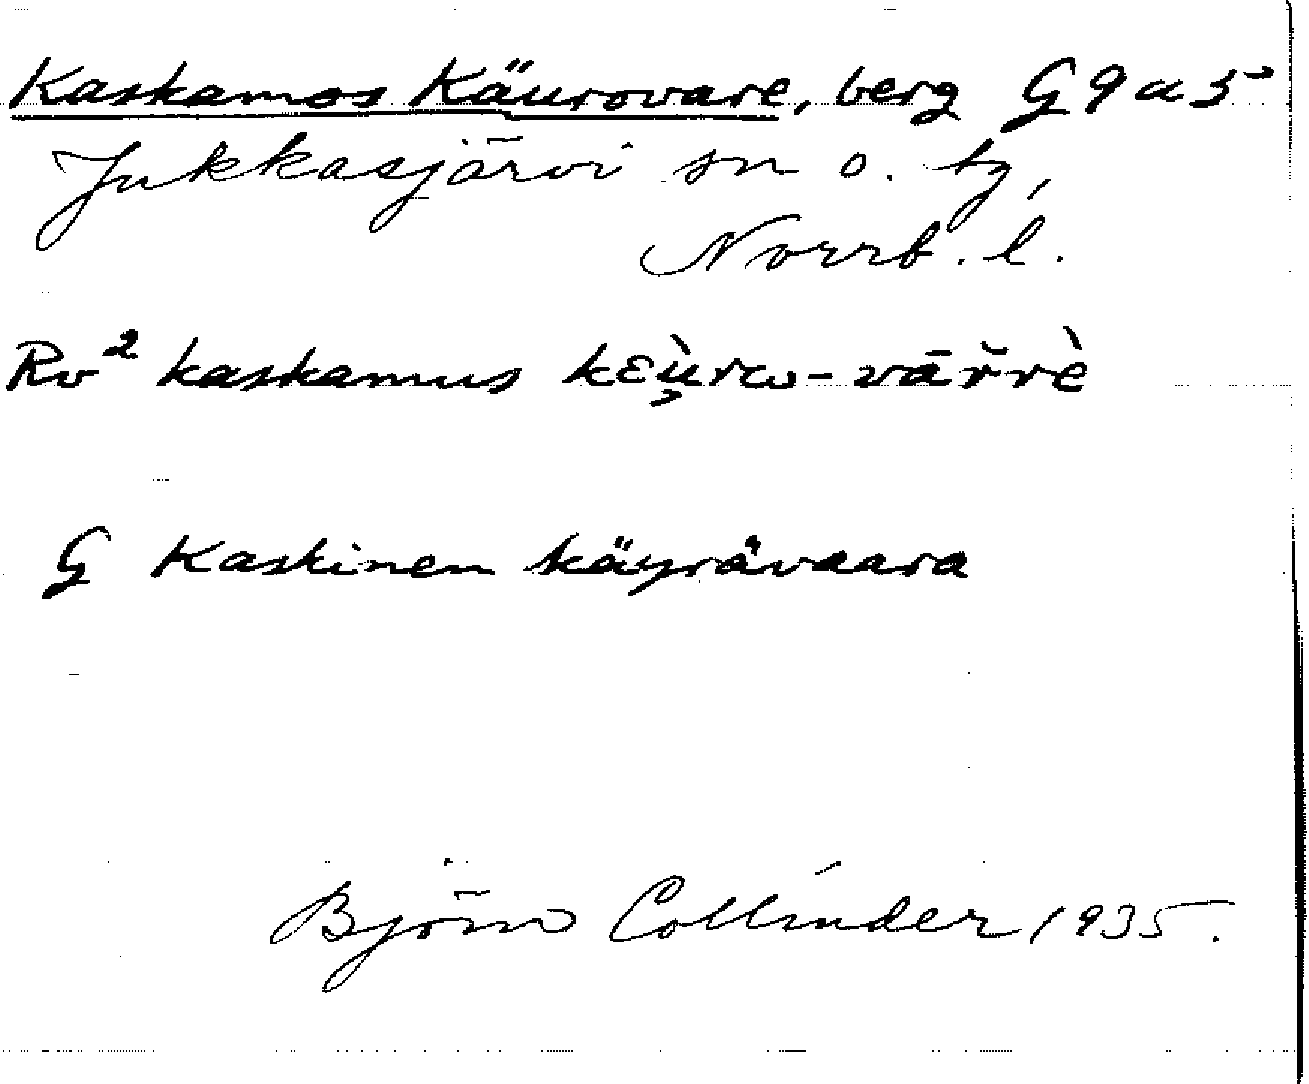 Kaskamos Käurovare, berg G9a5
Jukkasjärvi sn o. tg,
Norrb. l.
Rv² kaskamus kɛ̀u̯rω-vāřrè
G Kaskinen käyrävaara
Björn Collinder 1935.